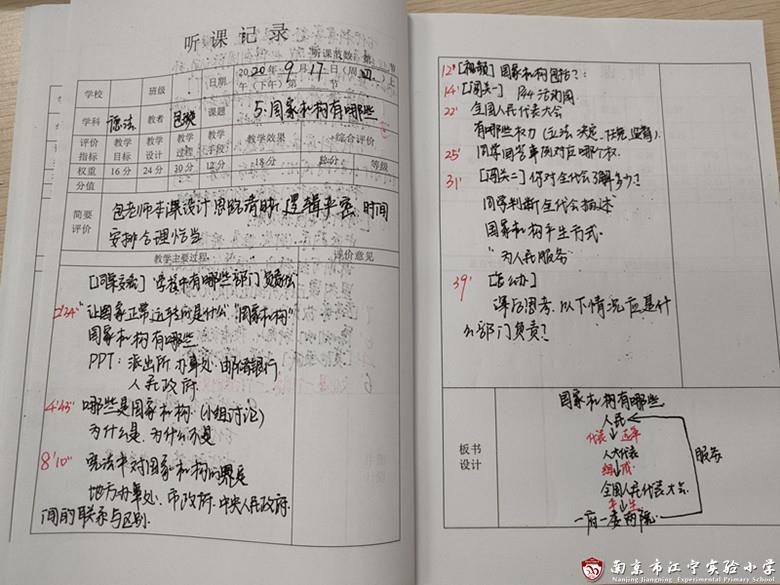 听课记录
听课节数：第 节
学校
班级
日期
2020年9月17日（周四）上
午（下午）第 节
学科
语法
教者
包璇
课题
5.国家机构有哪些
评价
指标
教学
目标
教学
设计
教学
过程
教学
手段
教学效果
综合评价
权重
16分
24分
30分
12分
18分
总分
等级
分值
简要
评价
包老师本课设计思路清晰,逻辑严密,时间
安排合理恰当
教学主要过程
评价意见
学校中有哪些部门负责公
2'34" 让国家正常运转应是什么"国家机构"
国家机构有哪些
PPT：派出所 办事处 邮储银行
人民政府
4'45" 哪些是国家机构.(小组讨论)
为什么是.为什么不是
8'10" 宪法中对国家机构的界定
地方办事处.市政府.中央人民政府
间的联系与区别.
12' [视频] 国家机构包括?：
14' [闯关一] P44 活动园
22' 全国人民代表大会
有哪些权力(立法、决定、任免、监督).
25' 同学回答事例对应哪个权.
31' [闯关二]你对全代会了解多少?
同学判断全代会描述
国家机构产生方式
"为人民服务
39'
课后思考.以下情况应是什
么部门负责?
板书
设计
国家机构有哪些
人民
代表 选举
人大代表
组成
全国人民代表大会
产生
一府一委两院.
服务
南京市江宁实验小学
Nanjing Jiangning Experimental Primary School